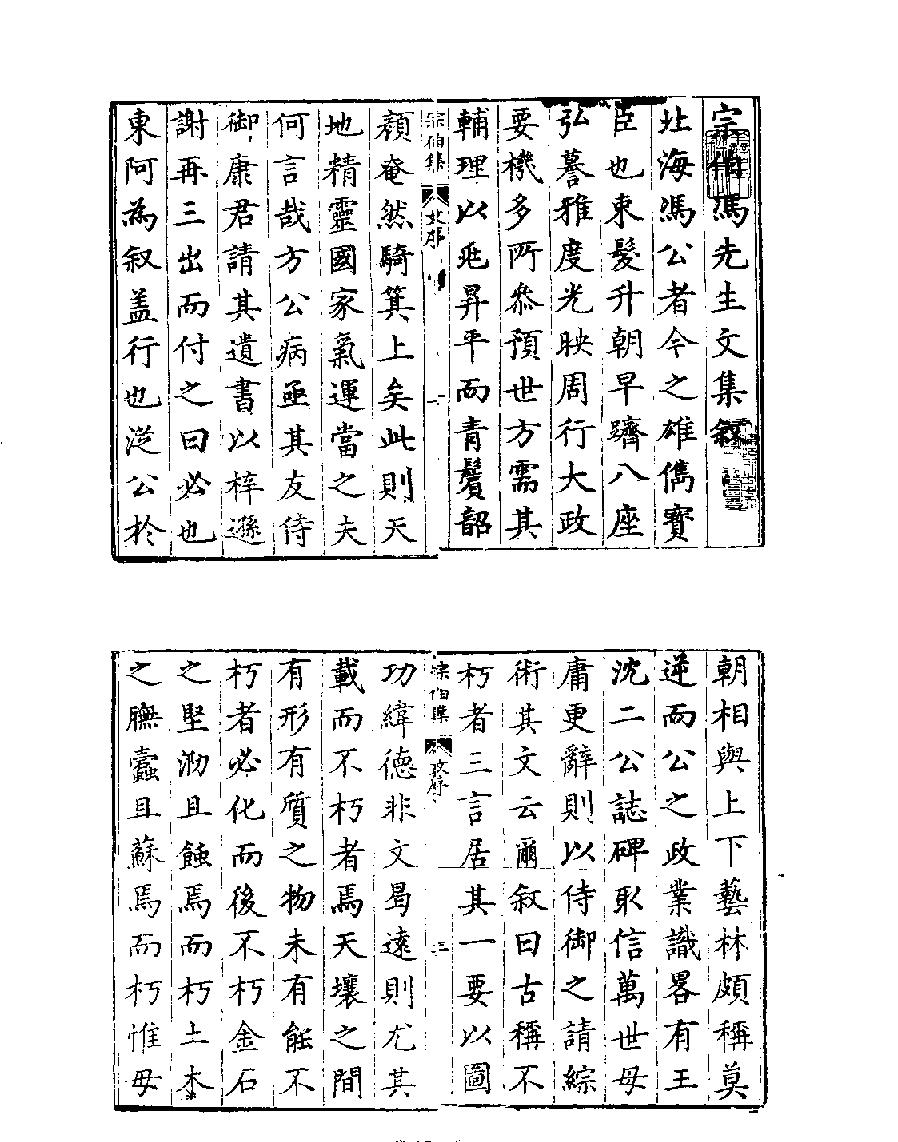 宗伯馮先生文集叙
北海馮公者今之雄儁寶
臣也束髮升朝早躋八座
弘蓦雅度光映周行大政
要機多所叅預世方需其
輔理以兆昇平而青鬢韶
宗伯集
文序
一
顏奄然騎箕上矣此則天
地精靈國家氣運當之夫
何言哉方公病亟其友侍
御康君請其遺書以梓遜
謝再三出而付之曰必也
東阿為叙盖行也從公於
朝相與上下藝林頗稱莫
逆而公之政業識畧有王
沈二公誌碑取信萬世毋
庸更辭則以侍御之請綜
術其文云爾叙曰古稱不
朽者三言居其一要以圖
宗伯集
文序
二
功緯德非文曷遠則尤其
載而不朽者焉天壤之間
有形有質之物未有能不
朽者必化而後不朽金石
之堅泐且蝕焉而朽土木
之膴蠹且蘇焉而朽惟毋